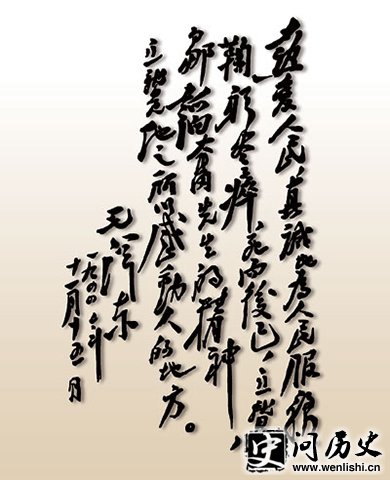 熱愛人民，真誠地為人民服務，
鞠躬尽瘁，死而後已，這就是
鄒韜奮先生的精神，
這就是他之所以感動人的地方。
毛澤東
一九四四年
十一月十五日
史问历史
www.wenlishi.cn